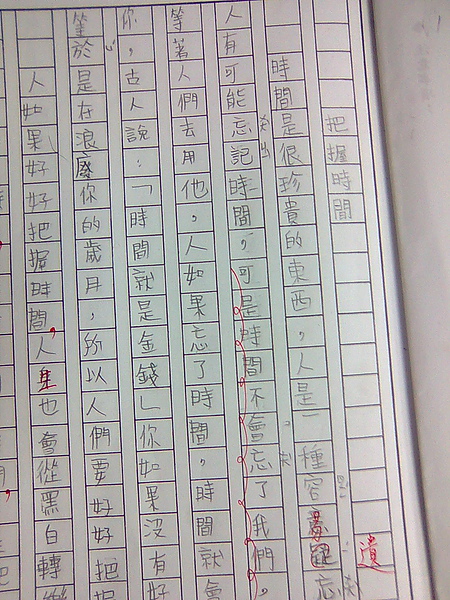 把握時間
時間是很珍貴的東西,人是一種容易遺忘
人有可能忘記時間,可是時間不會忘了我們。
等著人們去用他,人如果忘了時間,時間就會
你,古人說:「時間就是金錢」你如果沒有好
等於是在浪廢你的歲月,所以人們要好好把握
人如果好好把握時間,人生也會從黑白轉